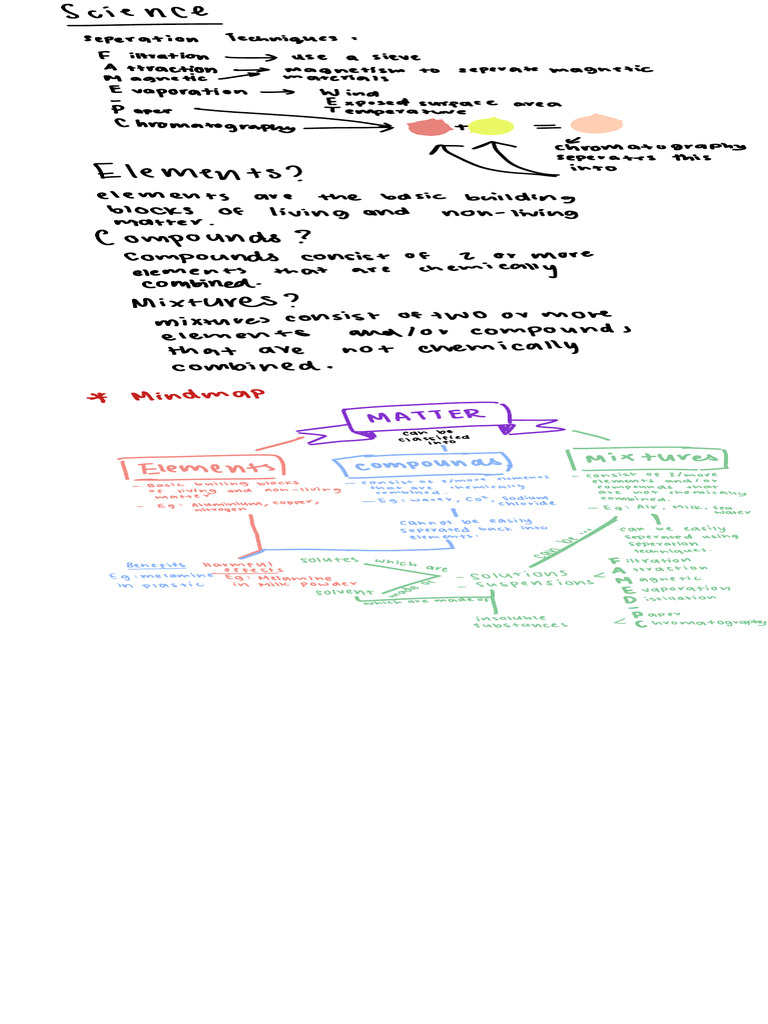 Science
seperation Techniques.
Filtration → use a sieve
Attraction → magnetism to seperate magnetic
Magnetic materials
Evaporation → Wind
Exposed surface area
Paper Temperature
Chromatography → + =
chromatography
seperates this
into
Elements?
elements are the basic building
blocks of living and non-living
matter.
Compounds?
Compounds consist of 2 or more
elements that are chemically
combined.
Mixtures?
mixtures consist of two or more
elements and/or compounds
that are not chemically
combined.
* Mindmap
MATTER
can be
classified
into
Elements
- Basic builing blocks
of living and non-living
matter
- Eg: Aluminium, copper,
nitrogen
Compounds
- consist of 2/more elements
that are chemically
combined.
- Eg: water, Co², sodium
chloride
cannot be easily
seperated back into
elements.
Mixtures
- consist of 2/more
elements and/or
compounds that
are not chemically
combined.
- Eg: Air, Milk, sea
water
can be easily
seperated using
seperation
techniques.
Filtration
Attraction
Magnetic
Evaporation
Distillation
Paper
< Chromatography
can be...
- solutions
- suspensions <
solutes which are
solvent made of
which are made of
insoluble
substances
Benefits
Eg: melamine
in plastic
Harmful
effects
Eg: Melamine
in Milk Powder